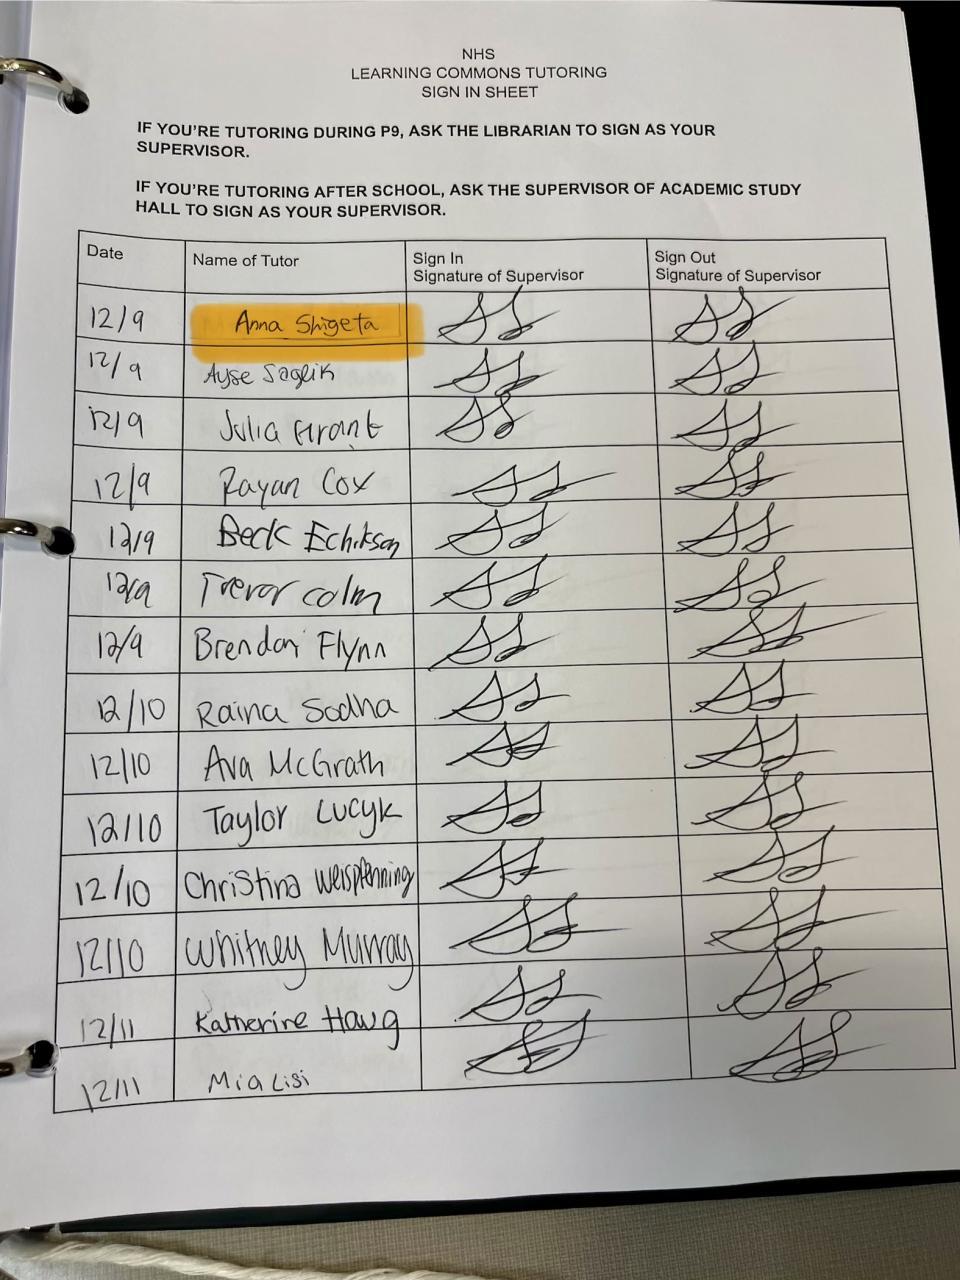 NHS
LEARNING COMMONS TUTORING
SIGN IN SHEET
IF YOU'RE TUTORING DURING P9, ASK THE LIBRARIAN TO SIGN AS YOUR
SUPERVISOR.
IF YOU'RE TUTORING AFTER SCHOOL, ASK THE SUPERVISOR OF ACADEMIC STUDY
HALL TO SIGN AS YOUR SUPERVISOR.
Date Name of Tutor Sign In Sign Out
Signature of Supervisor Signature of Supervisor
12/9 Anna Shigeta
12/9 Ayse Saglik
12/9 Julia Grant
12/9 Rayan Cox
12/9 Beck Echikson
12/9 Trevor Colm
12/9 Brendan Flynn
12/10 Raina Sodha
12/10 Ava McGrath
12/10 Taylor Lucyk
12/10 Christina Weispfenning
12/10 Whitney Murray
12/11 Katherine Haug
12/11 Mia Lisi